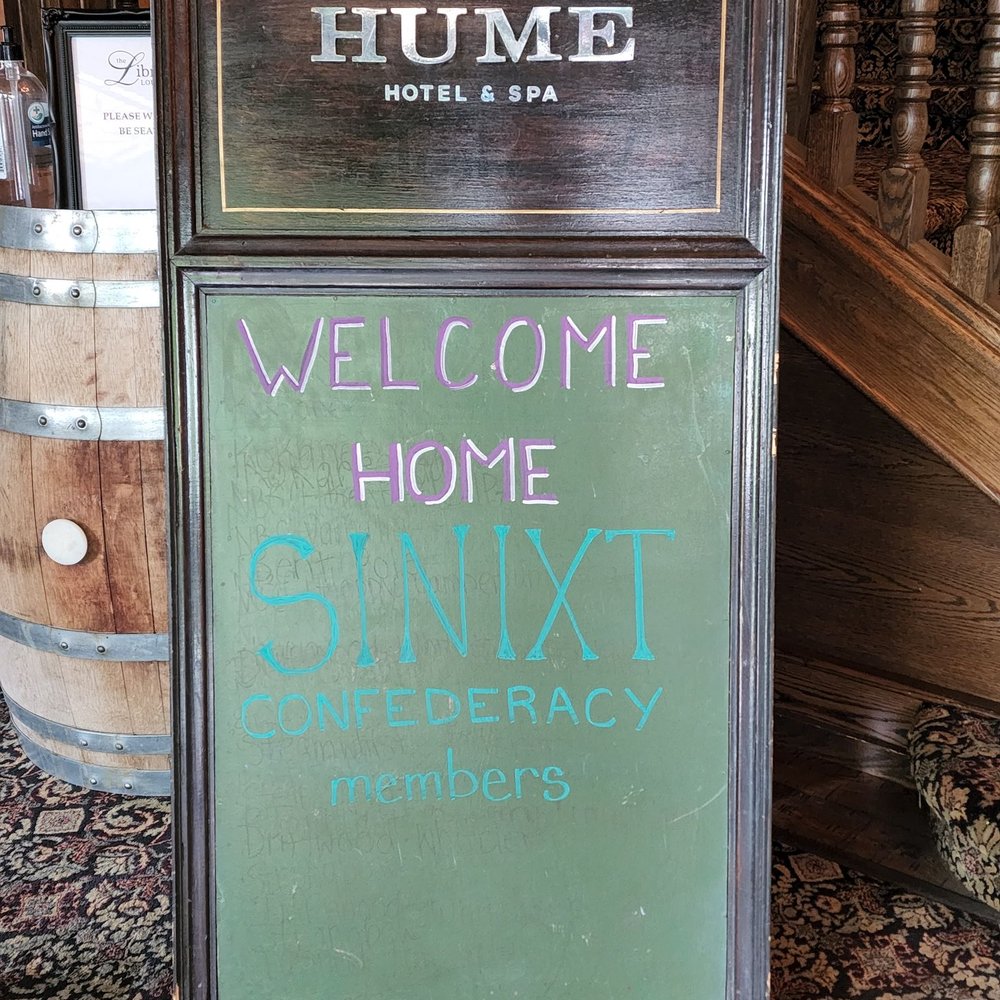 HUME
HOTEL & SPA
the
PLEASE W
BE SEA
Hand
WELCOME
HOME
SINIXT
CONFEDERACY
members